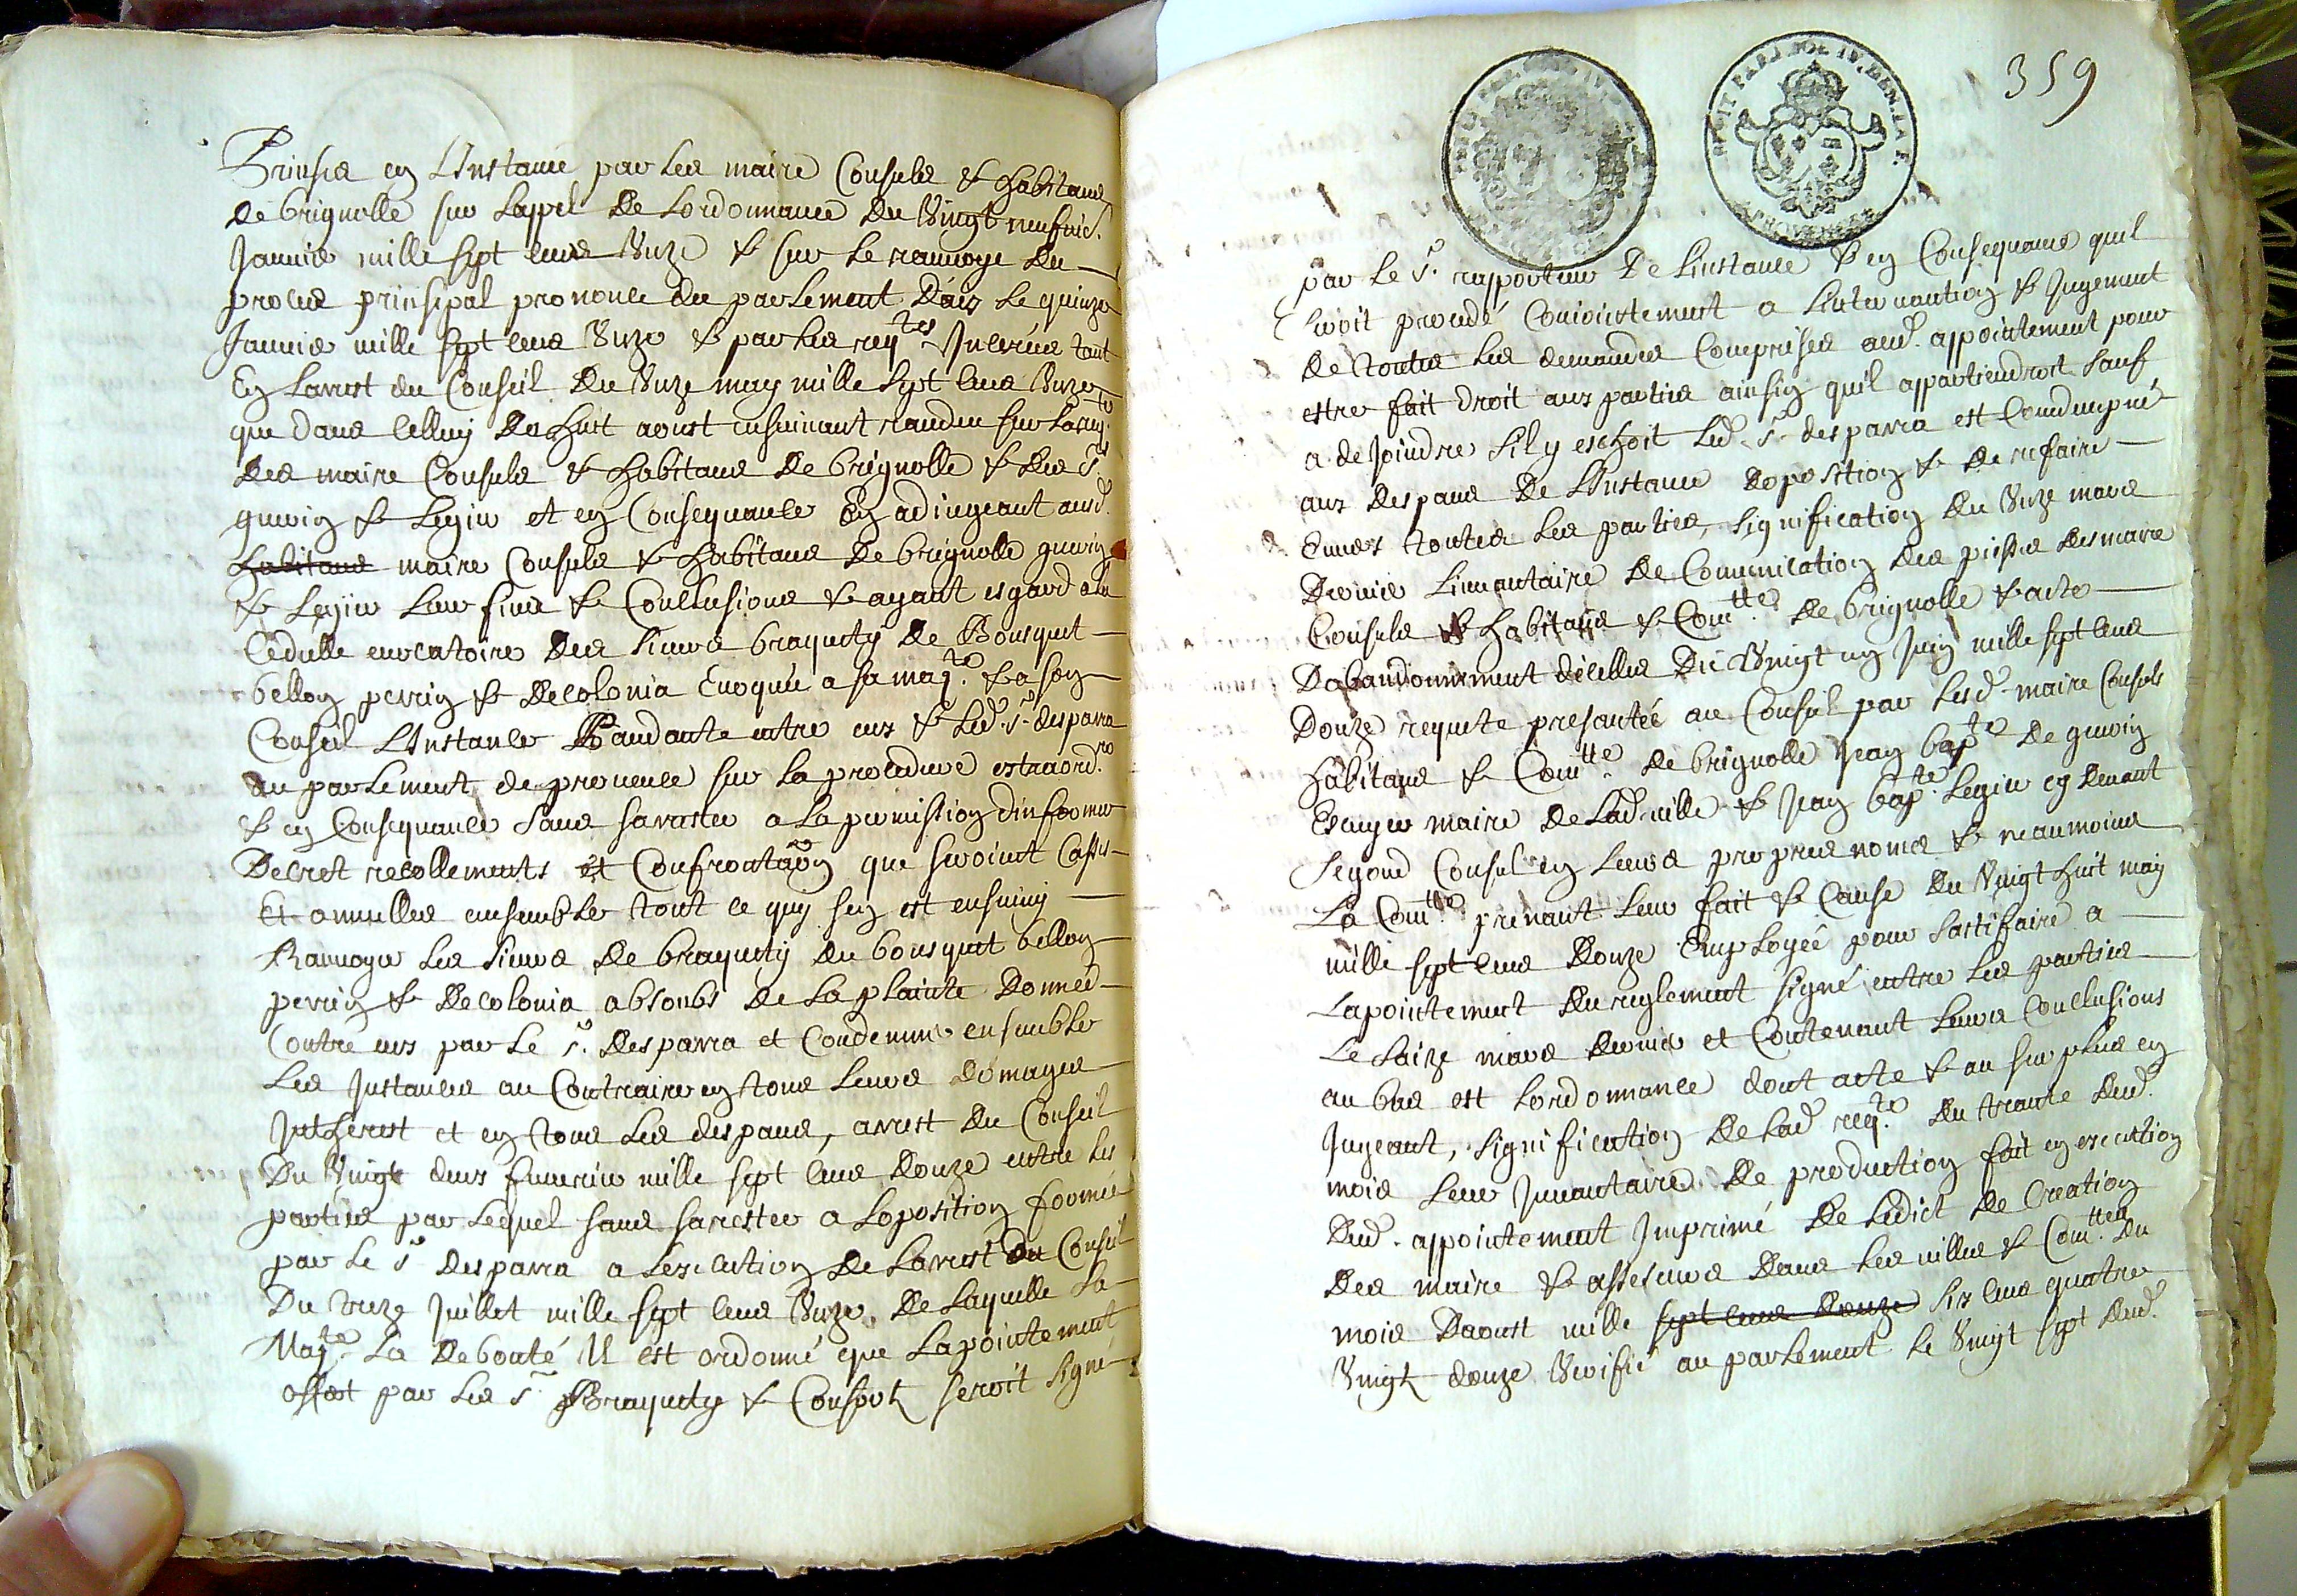 Prinses en L'Instance par les maire Consuls & habitans
de brignolle sur Lappel de Lordonnance du Vingt neufvie.
Janvier mille sept cens Unze & sur Le ranvoye du
proces prinsipal prononcé du parlement Daix Le quinze
Janvier mille sept cens Unze & par les reqtes Inserées tant
En Larrest du Conseil du Unze may mille sept cens Unze
que dans Celluy de huit aoust ensuivant randeu sur La reqte
des maire Consuls & habitans de brignolle & des Srs
guerin & Legier et en Consequance En adiugeant ausd.
habitans maire Consuls & habitans de brignolle guerin
& Legier Leur fins & Conclusions & ayant esgard a la
Cedulle evocatoire des sieurs braquety de Bousquet
bellon perrin & de Colonia Evoquée a sa magte & a son
Conseil L'Instance Pandante entre eux & Led. Sr desparra
au parlement de provence sur la procedure extraordre
& en Consequance sans sarrester a La permission dinformer
Decret recollements et Confrontaon que seroint Cassés
Et annulles ensemble tout ce quy sen est ensuivy
Ranvoyer les sieurs de braquety du bousquet bellon
perrin & de Colonia absoubs de La plainte Donnée
Contre eux par Le Sr. desparra et Condemner ensemble
Les Instances au Contraire en tous Leurs domages
Jntherest et en tous Les despans, arrest du Conseil
Du Vingt deux fevrier mille sept cens Douze entre les
parties par Lequel sans sarrester a Loposition formée
par Le Sr desparra a Lexecution de Larrest du Conseil
Du Unze Juillet mille sept cens Unze. De Laquelle Sa
Magte La Debouté Il est ordonné que Lapointement
offert par Les Srs Braquety & Consort seroit signé
359
par Le Sr. rapporteur De Linstance & en Consequance quil
seroit procedé Conioictement a Lintervantion & Jugement
de toutes Les demandes Comprises aud. appointement pour
estre fait droit aux parties ainsin quil appartiendroit sauf
a dejoindre sil y eschoit Led. Sr. desparra est Condempné
aux despans de L'Instance Doposition & de refaire
Envers toutes Les parties, signification du Unze mars
Dernier Linvantaire de Communication des piesses des maire
Consuls & habitans & Comtté de brignolle & acte
Dabandonnement dicelles Du Vingt un Juin mille sept cens
Douze requete presantée au Conseil par Lesd. maire Consuls
habitans & Comtté de brignolle Jean bapte de guerin
Escuyer maire de Lad. ville & Jean bapte Legier cy devant
segond Consul en Leurs propres noms & neanmoins
La Comtté prenant Leur fait & Cause du Vingt huit may
mille sept cens Douze Employée pour sattisfaire a
Lapointement du reglement signé entre Les parties
Le saize mars dernier et Contenant Leurs Conclusions
au bas est Lordonnance dont acte & au surplus en
Jugeant, signification de Lad. reqte du trante dud.
mois Leur Jnvantaire de production fait en execution
Dud. appointement Jmprimé de Ledict de Creation
Des maire & assesseurs dans Les villes & Comttés du
mois Daoust mille sept cens douze six cens quatre
Vingt douze Verifié au parlement Le Vingt sept dud.